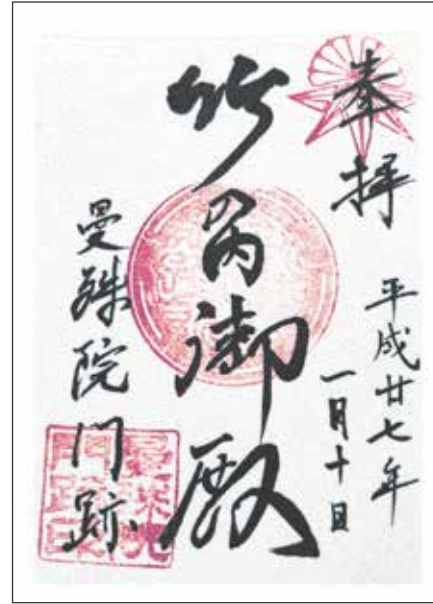 奉拝
平成廿七年
一月十日
竹の内御殿
曼殊院門跡